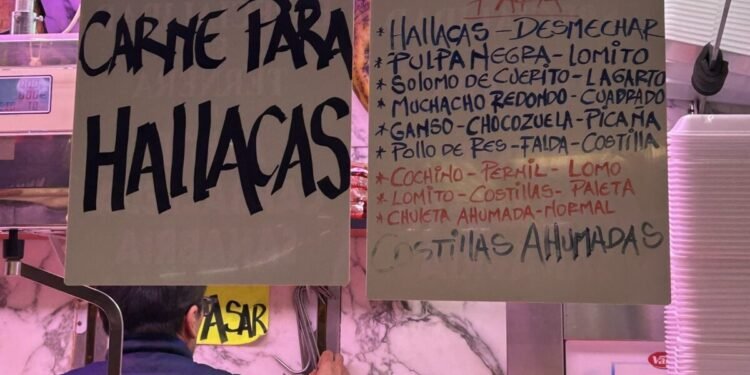 CARNE PARA
HALLACAS
PARA
* HALLACAS - DESMECHAR
* PULPA NEGRA - LOMITO
* SOLOMO DE CUERITO - LAGARTO
* MUCHACHO REDONDO - CUADRADO
* GANSO - CHOCOZUELA - PICAÑA
* POLLO DE RES - FALDA - COSTILLA
* COCHINO - PERNIL - LOMO
* LOMITO - COSTILLAS - PALETA
* CHULETA AHUMADA - NORMAL
COSTILLAS AHUMADAS
ASAR